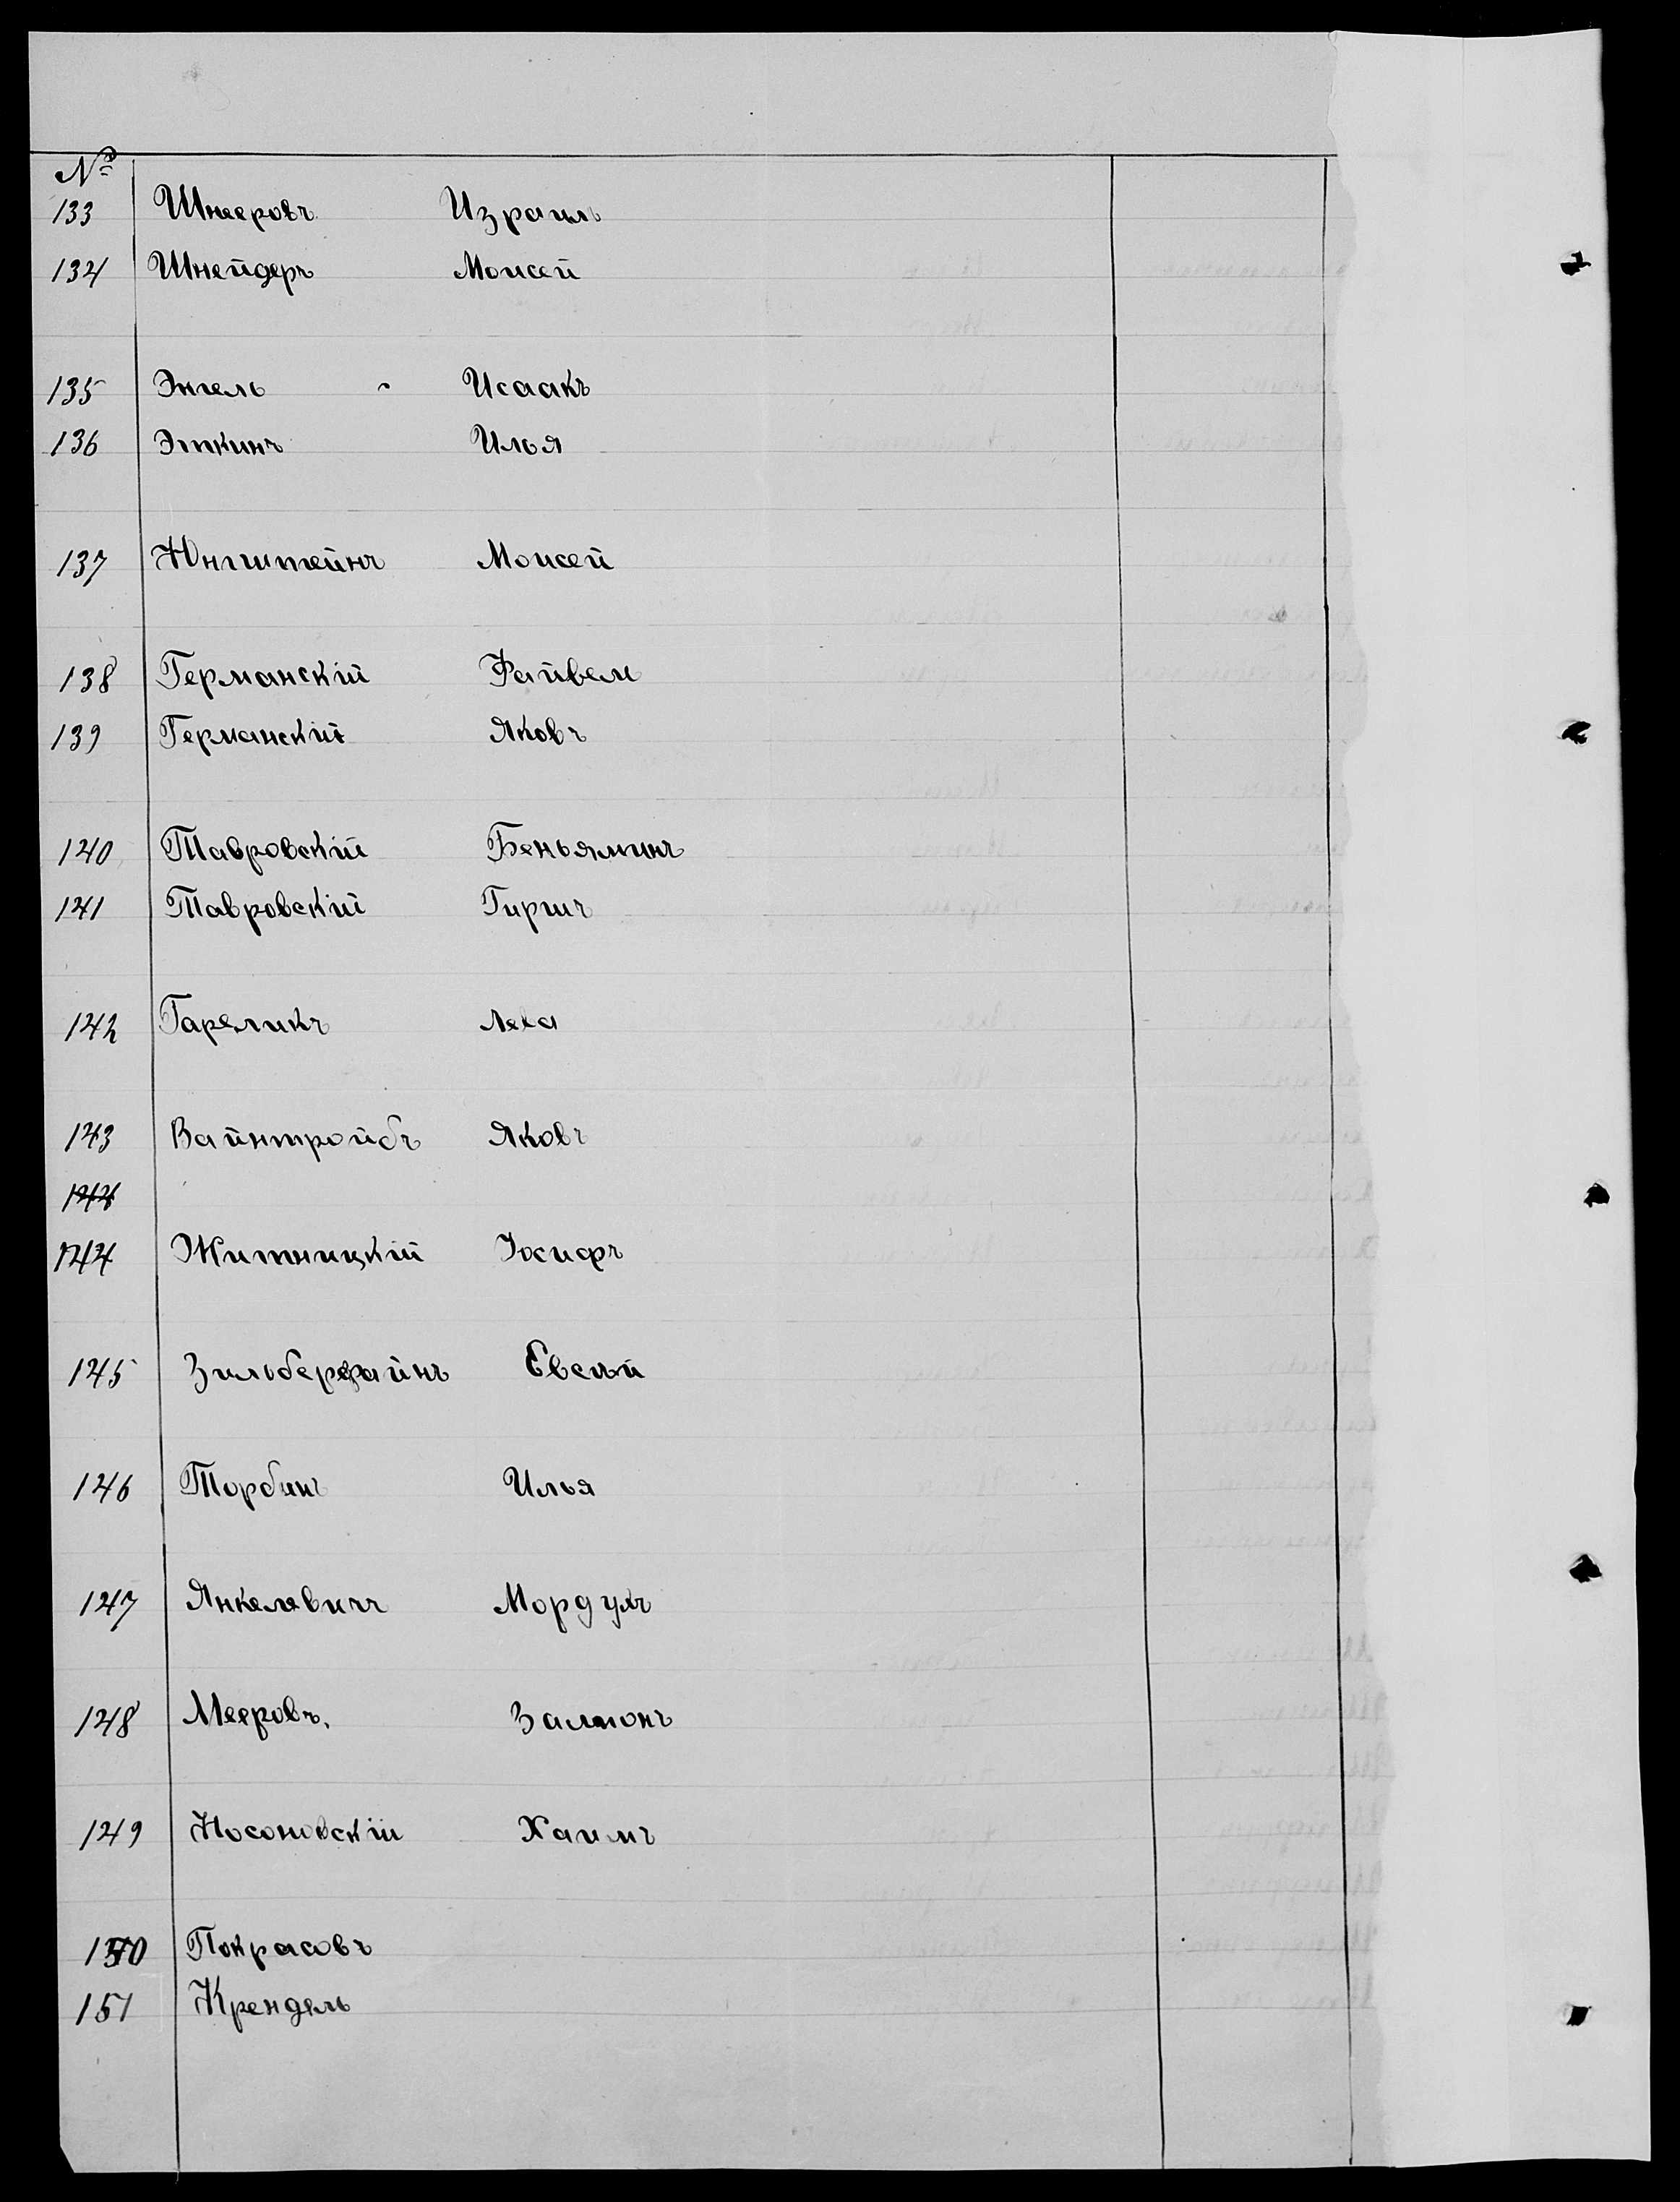 №
133 Шнееровъ Израиль
134 Шнейдеръ Моисей
135 Энгель Исаакъ
136 Эткинъ Илья
137 Юнгштейнъ Моисей
138 Германскій Файвель
139 Германскій Яковъ
140 Тавровскій Беньяминъ
141 Тавровскій Гиршъ
142 Гареликъ Лева
143 Вайнтройбъ Яковъ
144
144 Житницкій Іосифъ
145 Зильберфайнъ Евсѣй
146 Торбинъ Илья
147 Янкелевичъ Мордухъ
148 Мееровъ. Залмонъ
149 Носоновскій Хаимъ
150 Покрасовъ
151 Крендель